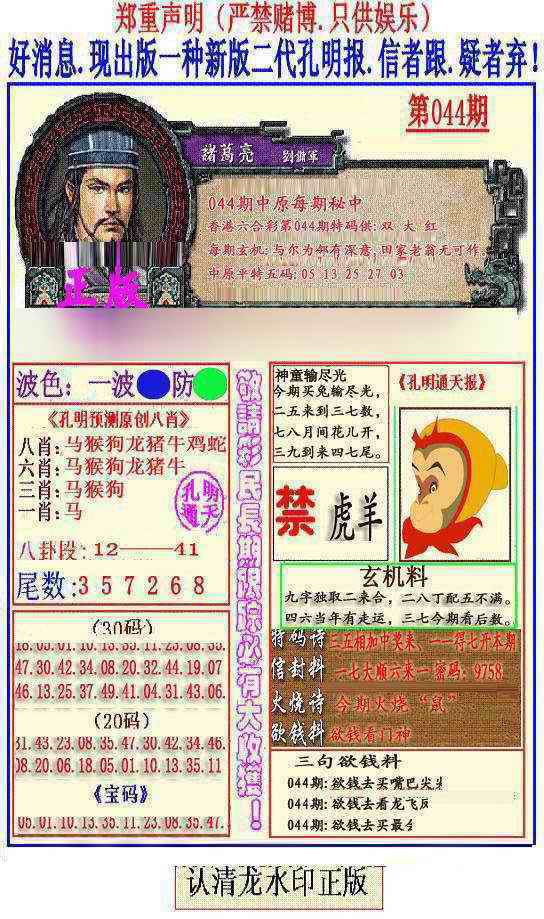 郑重声明（严禁赌博.只供娱乐）
好消息.现出版一种新版二代孔明报.信者跟.疑者弃！
第044期
諸葛亮 劉備軍
044期中原每期秘中
香港六合彩第044期特码供: 双 大 红
每期玄机: 与尔为邻有深意,田家老翁无可作.
中原平特五码: 05 13 25 27 03
正版
波色: 一波 防
《孔明预测原创八肖》
八肖: 马猴狗龙猪牛鸡蛇
六肖: 马猴狗龙猪牛
三肖: 马猴狗
一肖: 马
孔明
通天
八卦段: 12——41
尾数: 3 5 7 2 6 8
(30码)
18.05.01.10.13.35.11.23.08.33.
47.30.42.34.08.20.32.44.19.07
46.13.25.37.49.41.04.31.43.06.
(20码)
31.43.23.08.35.47.30.42.34.46.
08.20.06.18.05.01.10.13.35.11
《宝码》
05.01.10.13.35.11.23.08.35.47.
敬請彩民長期跟踪必有大收獲！
神童输尽光
今期买兔输尽光,
二五来到三七数,
七八月间花儿开,
三九到来四七尾。
《孔明通天报》
禁 虎羊
玄机料
九字独取二来合, 二八丁配五不满。
四六当年有走运, 三七今期看后数。
特码诗 三五相加中奖来、一一得七开本期
信封料 一七大顺六来一密码: 9758.
火烧诗 今期火烧“鼠”
欲钱料 欲钱看门神
三句欲钱料
044期: 欲钱去买嘴巴尖
044期: 欲钱去看龙飞
044期: 欲钱去买最
认清龙水印正版